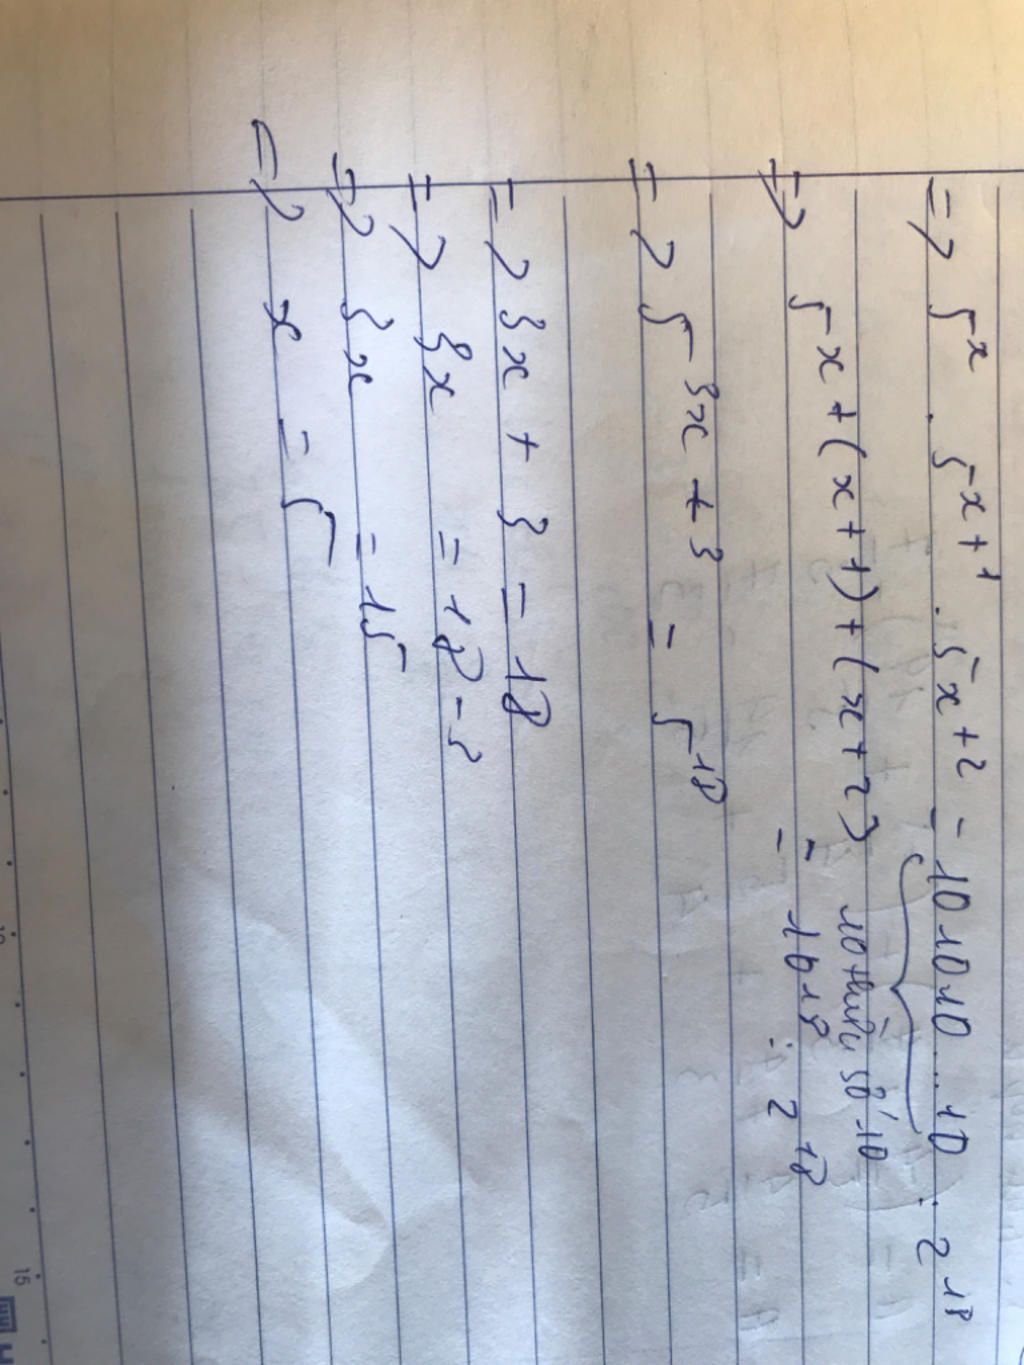 => 5^x . 5^x+1 . 5^x+2 = 10 10 10 ... 10 : 2^18
10 thừa số 10
=> 5^x+(x+1)+(x+2) = 10^18 : 2^18
=> 5^3x+3 = 5^18
=> 3x + 3 = 18
=> 3x = 18 - 3
=> 3x = 15
=> x = 5
15